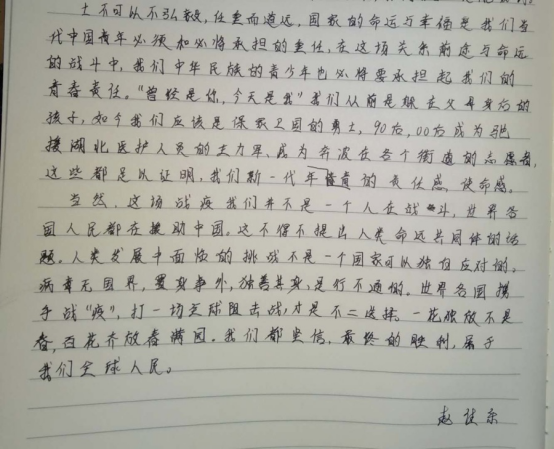 士不可以不弘毅,任重而道远。国家的命运与幸福是我们当
代中国青年必须和必将承担的重任,在这场关系前途与命运
的战斗中,我们中华民族的青少年也必将要承担起我们的
青春责任。"曾经是你,今天是我"我们从前是躲在父母身后的
孩子,如今我们应该是保家卫国的勇士,90后,00后成为驰
援湖北医护人员的主力军,成为奔波在各个街道的志愿者,
这些都足以证明,我们新一代年青的责任感,使命感。
当然,这场战疫我们并不是一个人在战斗,世界各
国人民都在援助中国。这不得不提出人类命运共同体的话
题。人类发展中面临的挑战不是一个国家可以独自应对的。
病毒无国界,置身事外,独善其身,是行不通的。世界各国携
手战"疫",打一场全球阻击战,才是不二选择。一花独放不是
春,百花齐放春满园。我们都坚信,最终的胜利,属于
我们全球人民。
赵佳